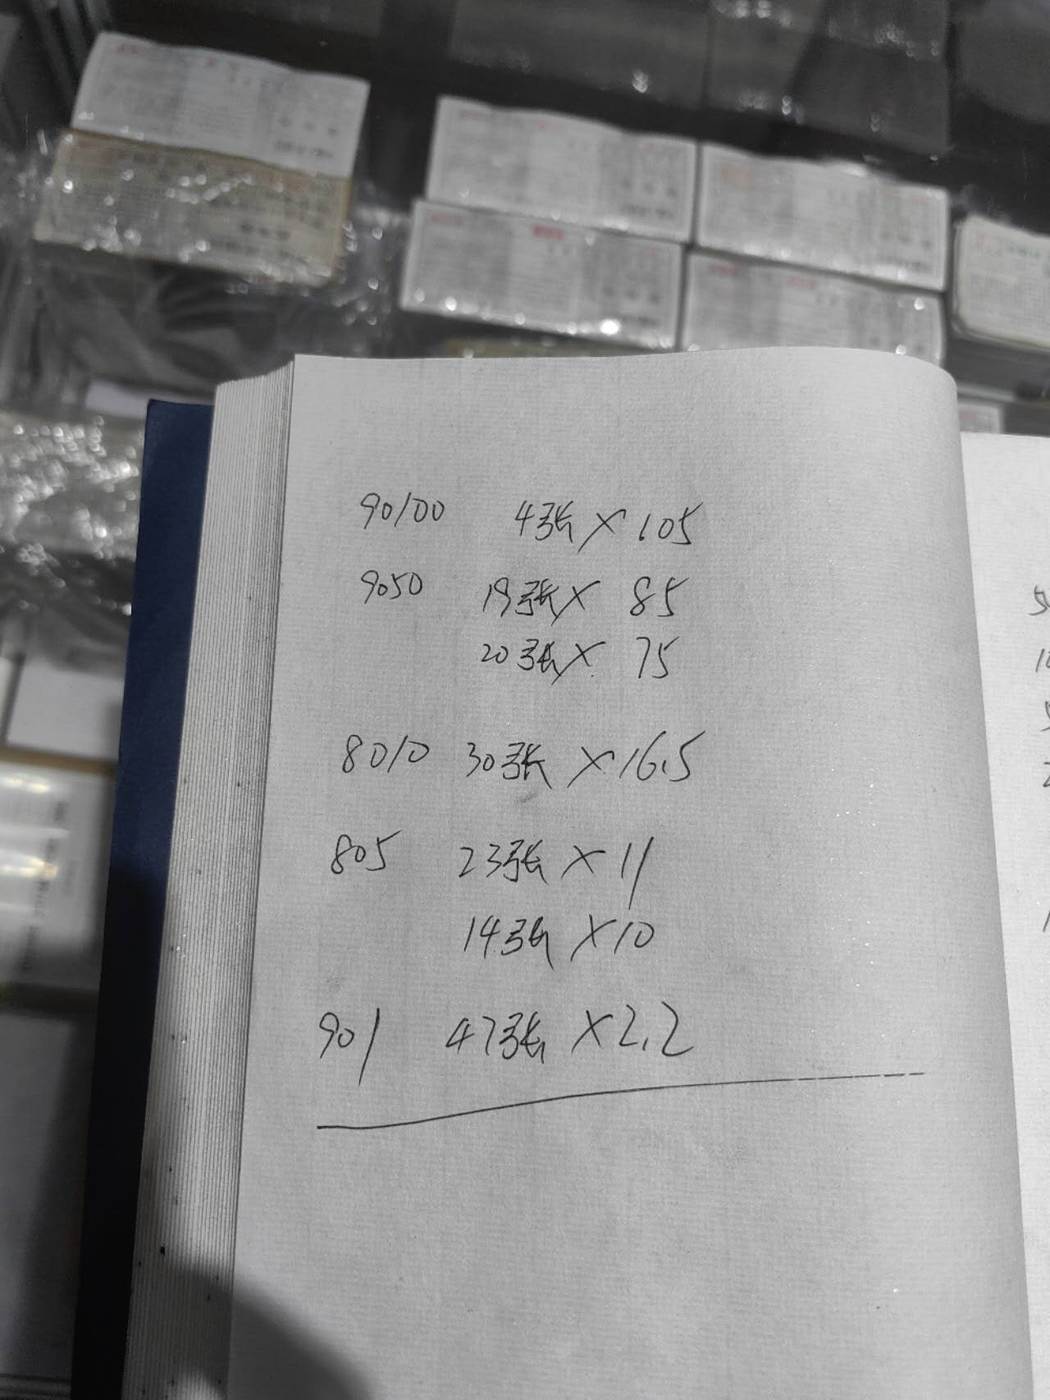 90100 4张×105
9050 19张×85
20张×75
8010 30张×16.5
805 23张×11
14张×10
901 47张×2.2